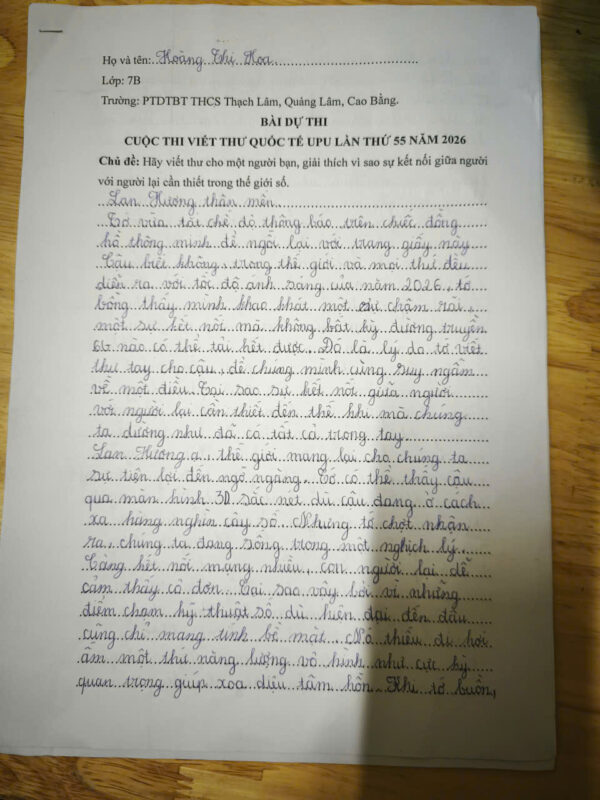 Họ và tên: Hoàng Thị Hoa
Lớp: 7B
Trường: PTDTBT THCS Thạch Lâm, Quảng Lâm, Cao Bằng.
BÀI DỰ THI
CUỘC THI VIẾT THƯ QUỐC TẾ UPU LẦN THỨ 55 NĂM 2026
Chủ đề: Hãy viết thư cho một người bạn, giải thích vì sao sự kết nối giữa người
với người lại cần thiết trong thế giới số.
Lan Hương thân mến
Tớ vừa tắt chế độ thông báo trên chiếc đồng
hồ thông minh để ngồi lại với trang giấy này
Cậu biết không, trong thế giới và mọi thứ đều
diễn ra với tốc độ ánh sáng của năm 2026, tớ
bỗng thấy mình khao khát một sự chậm rãi,
một sự kết nối mà không bất kỳ đường truyền
6G nào có thể tải hết được. Đó là lý do tớ viết
thư tay cho cậu, để chúng mình cùng suy ngẫm
về một điều. Tại sao sự kết nối giữa người
với người lại cần thiết đến thế khi mà chúng
ta dường như đã có tất cả trong tay.
Lan Hương ạ, thế giới mang lại cho chúng ta
sự tiện lợi đến ngỡ ngàng. Tớ có thể thấy cậu
qua màn hình 3D sắc nét dù cậu đang ở cách
xa hàng nghìn cây số. Nhưng tớ chợt nhận
ra, chúng ta đang sống trong một nghịch lý.
Càng kết nối mạng nhiều, con người lại dễ
cảm thấy cô đơn. Tại sao vậy bởi vì những
điểm chạm kỹ thuật số dù hiện đại đến đâu
cũng chỉ mang tính bề mặt. Nó thiếu đi hơi
ấm một thứ năng lượng vô hình như cực kỳ
quan trọng giúp xoa dịu tâm hồn. Khi tớ buồn,